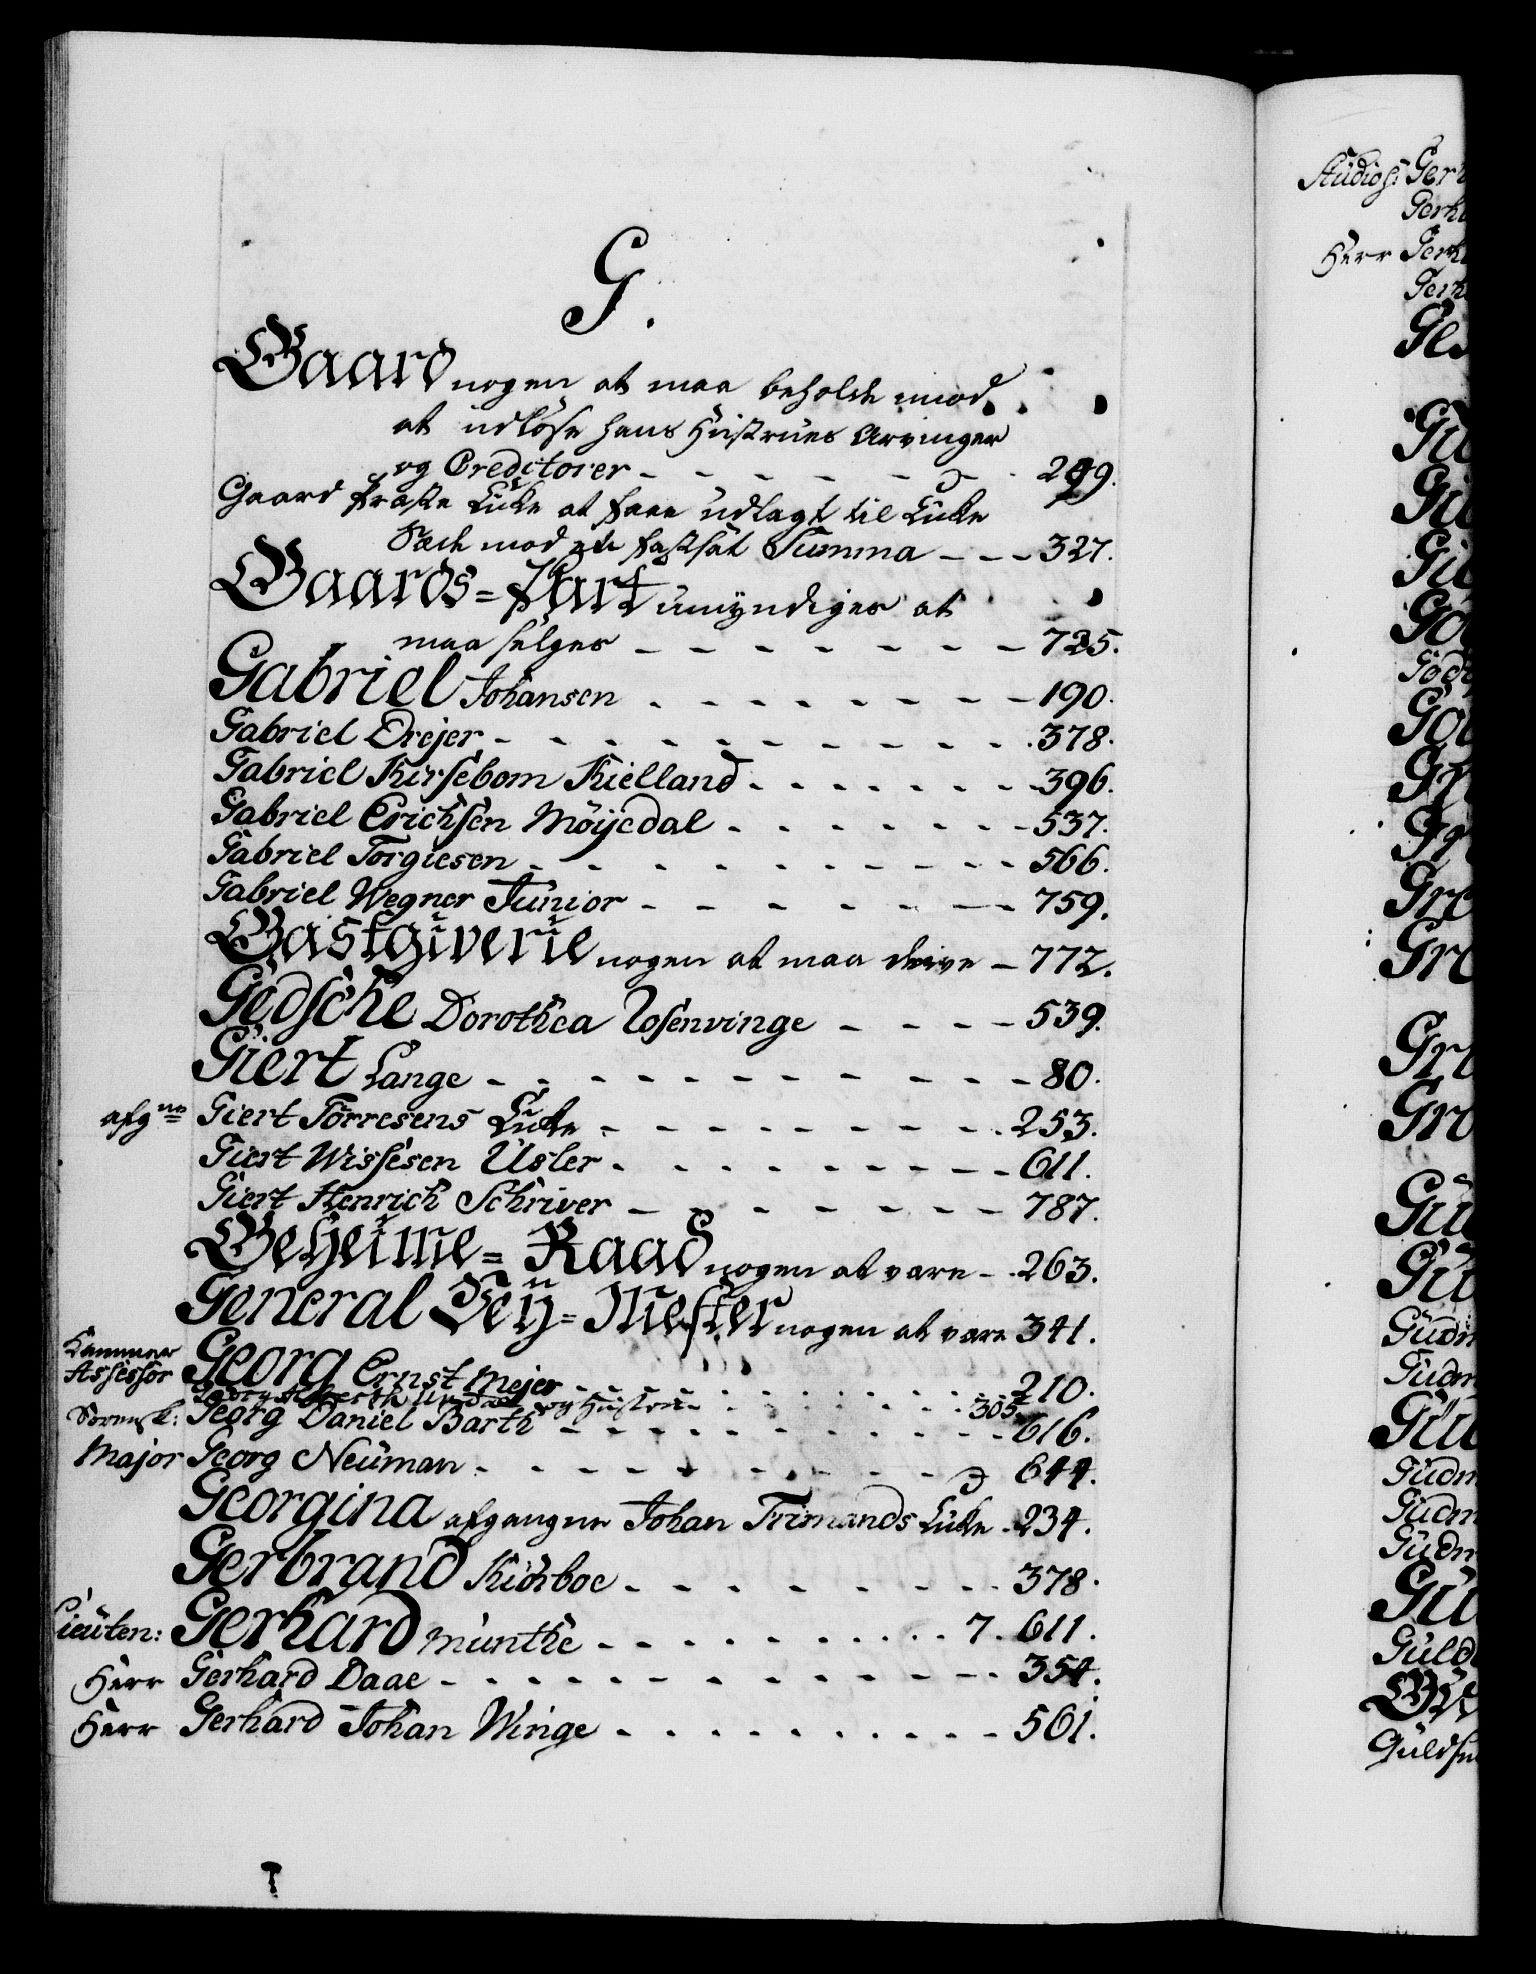 G.
Gaard nogen at maa beholde imod
at udlöse hans Hustrues Arvinger
og Creditorer - - - - - - - 249.
Gaard at faae udlagt til Enke
Sæde mod en fastsat Summa - - - 327.
Gaards=Part umyndiges at
maa sælges - - - - - - - 725.
Gabriel Johansen - - - - - - - 190.
Gabriel Drejer - - - - - - - - - 378.
Gabriel Kirsebom Kielland - - - - - - 396.
Gabriel Erichsen Möÿedal - - - - - - 537.
Gabriel Torgiesen - - - - - - - - - 566.
Gabriel Wegner Junior - - - - - - - 759.
Gastgiverie nogen at maa drive - 772.
Gedsche Dorothea Rosenvinge - - - - 539.
Giert Lange - - - - - - - - - - 80.
afgne Giert Torresens Enke - - - - - - - - 253.
Giert Wissesen Üsler - - - - - - - - 611.
Giert Henrich Schriver - - - - - - - 787.
Geheime=Raad nogen at være - - 263.
General Tey=Mester nogen at være 341.
Kammer
Assessor Georg Ernst Mejer - - - - - - - - 210.
Georg og Hustrue - - - - - - - 305.
Sorensk: Georg Daniel Barth - - - - - - - - 616.
Major Georg Neüman - - - - - - - - - 644.
Georgina afgangne Johan Frimands Enke - 234.
Gerbrand Kiörboe - - - - - - - - 378.
Lieuten: Gerhard Munthe - - - - - - - - 7. 611.
Herr Gerhard Daae - - - - - - - - - - 354.
Herr Gerhard Johan Winge - - - - - - - - 561.
Studios: Ger
Gerh
Herr Gerh
Gerh
Gü
Gro
Gro
Gro
Gro
Gü
Gü
Gudm
Gudm
Gudm
Gudm
Gudm
Guld